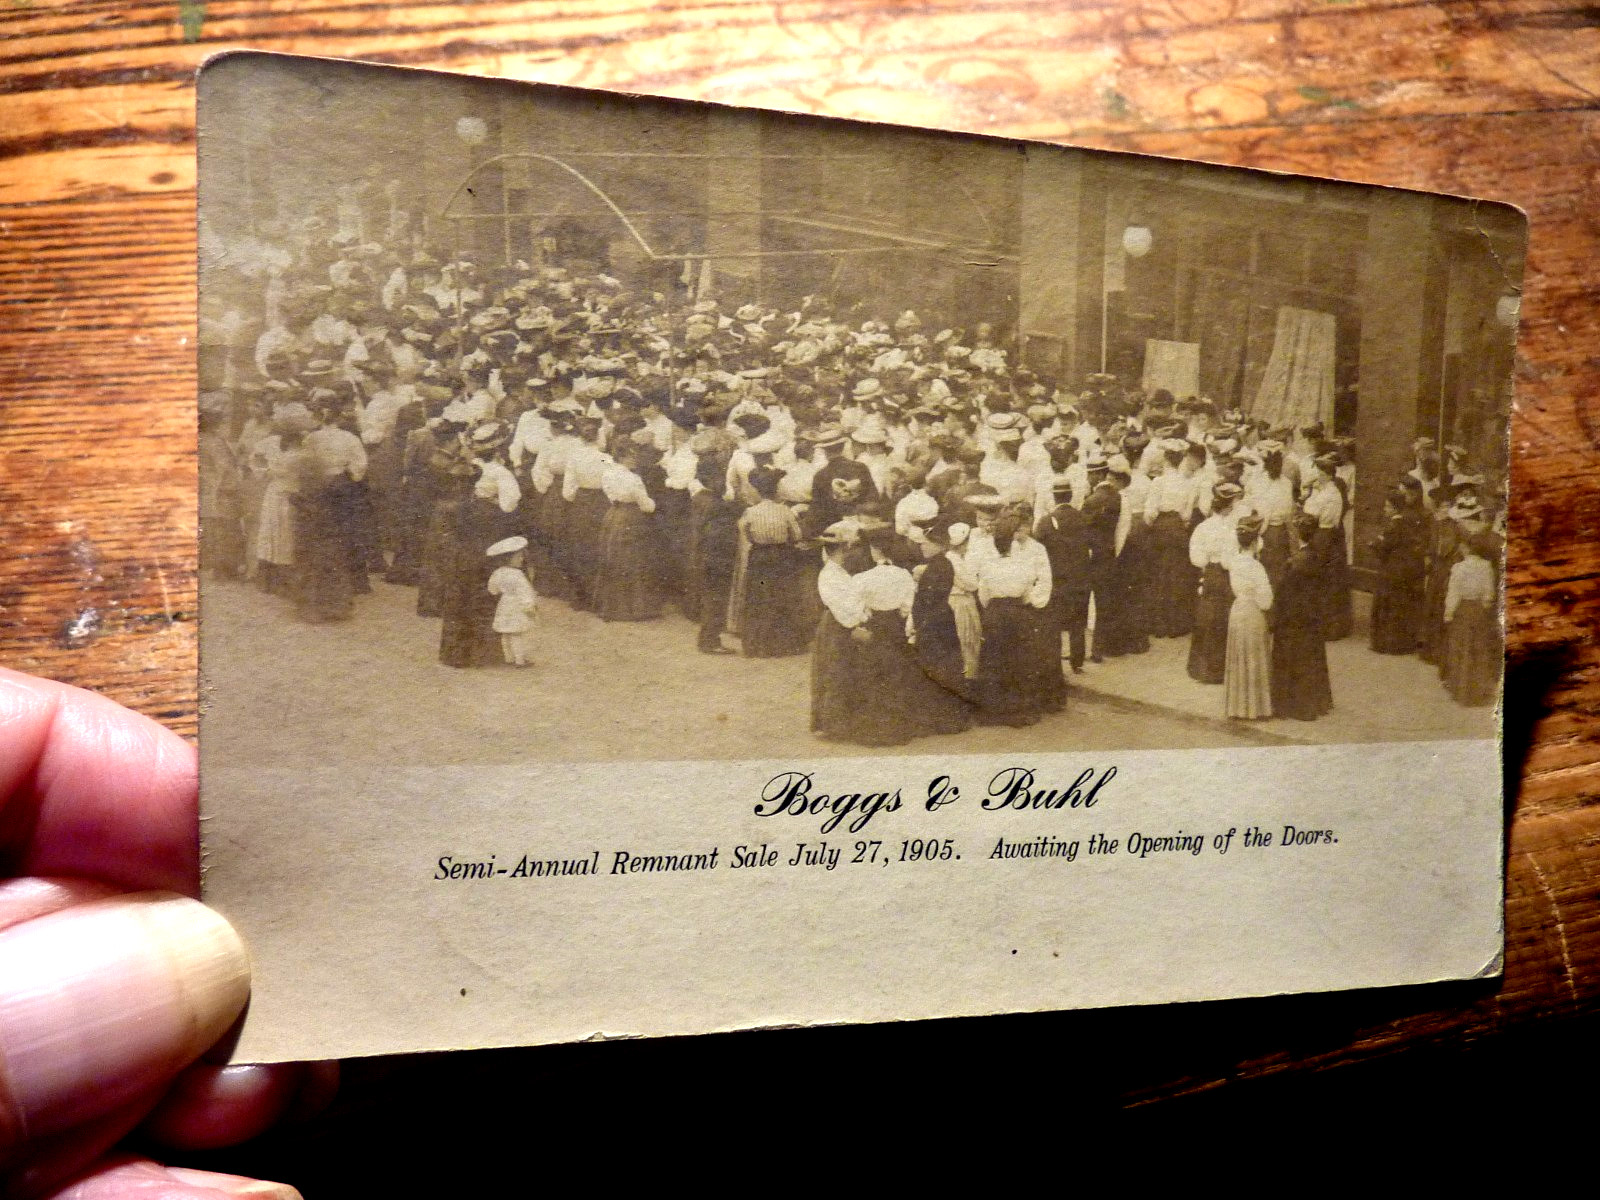 Boggs & Buhl
Semi-Annual Remnant Sale July 27, 1905. Awaiting the Opening of the Doors.